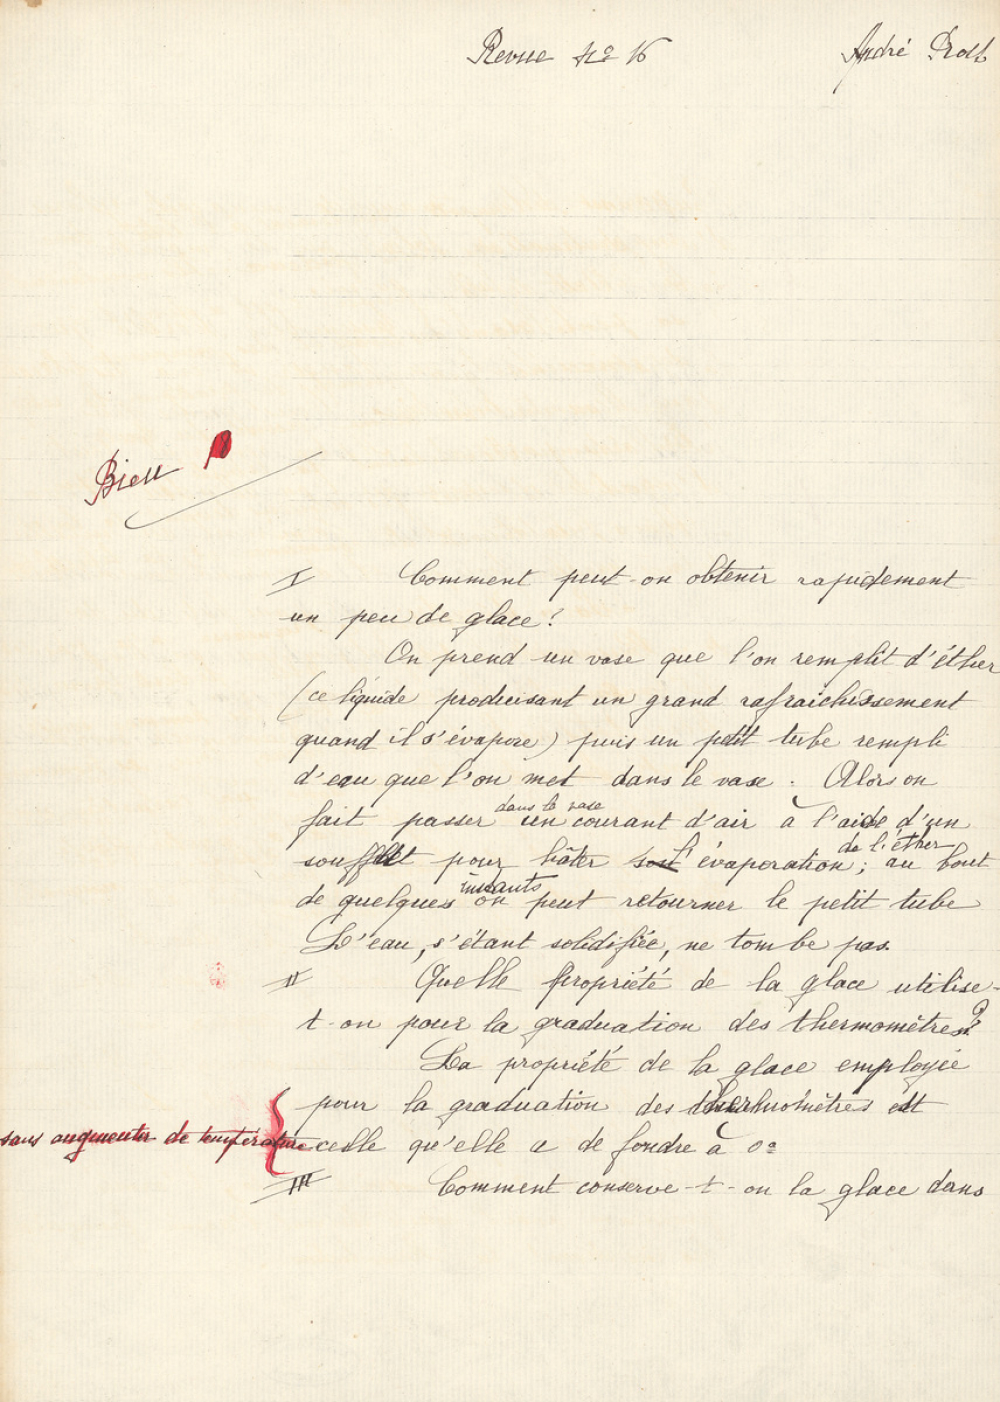 Revue No 16
André Prost
Bien
I Comment peut-on obtenir rapidement
un peu de glace?
On prend un vase que l'on remplit d'éther
(ce liquide produisant un grand rafraichissement
quand il s'évapore) puis un petit tube rempli
d'eau que l'on met dans le vase. Alors on
fait passer dans le vase un courant d'air à l'aide d'un
soufflet pour hâter l'évaporation de l'éther; au bout
de quelques instants on peut retourner le petit tube
L'eau, s'étant solidifiée, ne tombe pas.
II Quelle propriété de la glace utilise-
t-on pour la graduation des thermomètres?
La propriété de la glace employée
pour la graduation des thermomètres est
sans augmenter de température celle qu'elle a de fondre à 0°
III Comment conserve-t-on la glace dans